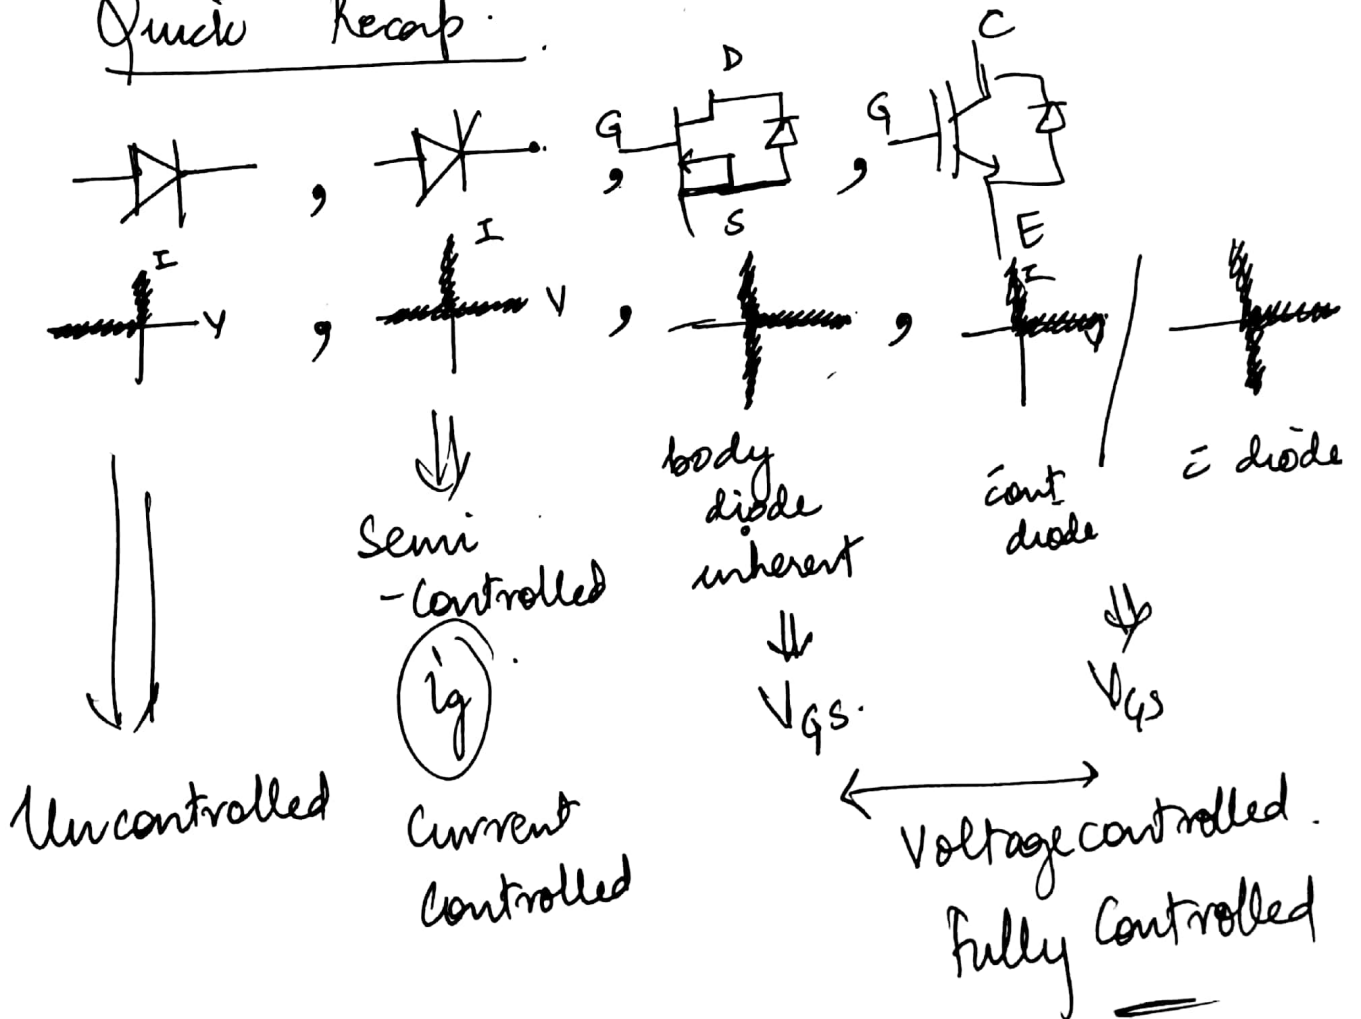 Quick Recap.
D
C
G
G
,
,
,
S
E
I
I
I
V
V
,
,
,
body
diode
inherent
diode
c̄ diode
Semi
-Controlled
ig
VGS.
VGS
Uncontrolled
Current
Controlled
Voltage controlled.
Fully Controlled